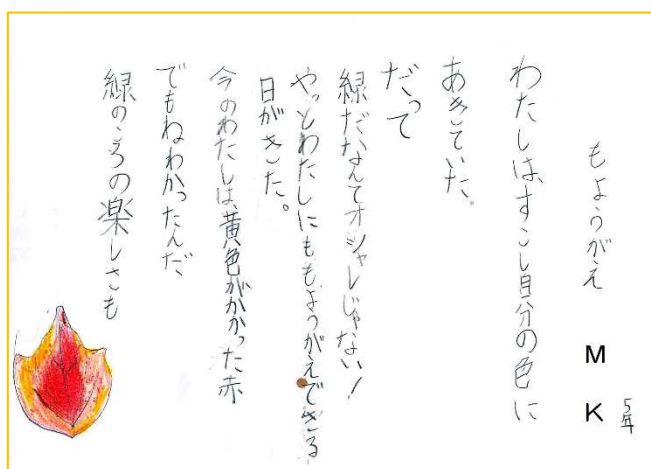 もようがえ
M K
5年
わたしは、すこし自分の色に
あきていた。
だって
緑だなんてオシャレじゃない!
やっとわたしにももようがえできる
日がきた。
今のわたしは、黄色がかかった赤
でもねわかったんだ、
緑のころの楽しさも